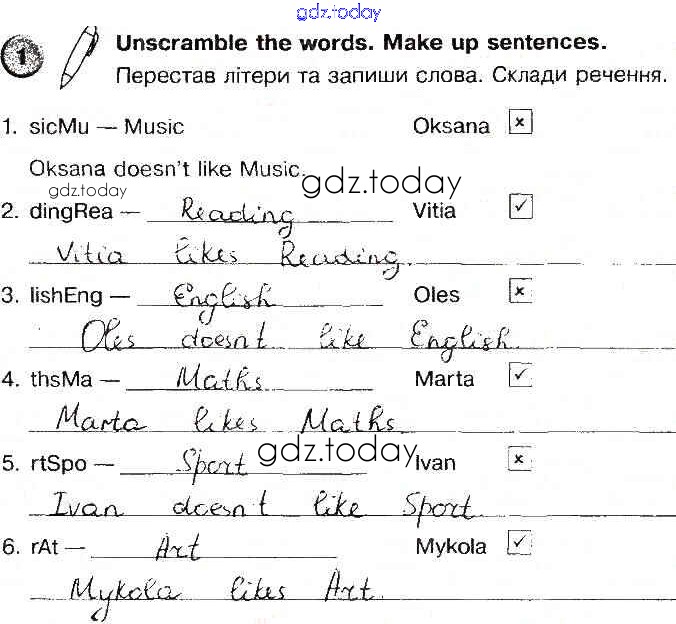 gdz.today
1 Unscramble the words. Make up sentences.
Перестав літери та запиши слова. Склади речення.
1. sicMu — Music Oksana ×
Oksana doesn't like Music.
gdz.today
gdz.today
2. dingRea — Reading Vitia ✓
Vitia likes Reading.
3. lishEng — English Oles ×
Oles doesnt like English.
4. thsMa — Maths Marta ✓
Marta likes Maths
gdz.today
5. rtSpo — Sport Ivan ×
Ivan doesn't like Sport.
6. rAt — Art Mykola ✓
Mykola likes Art.